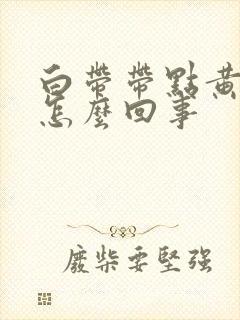 白帶帶點黃
怎麼回事
廢柴要堅強